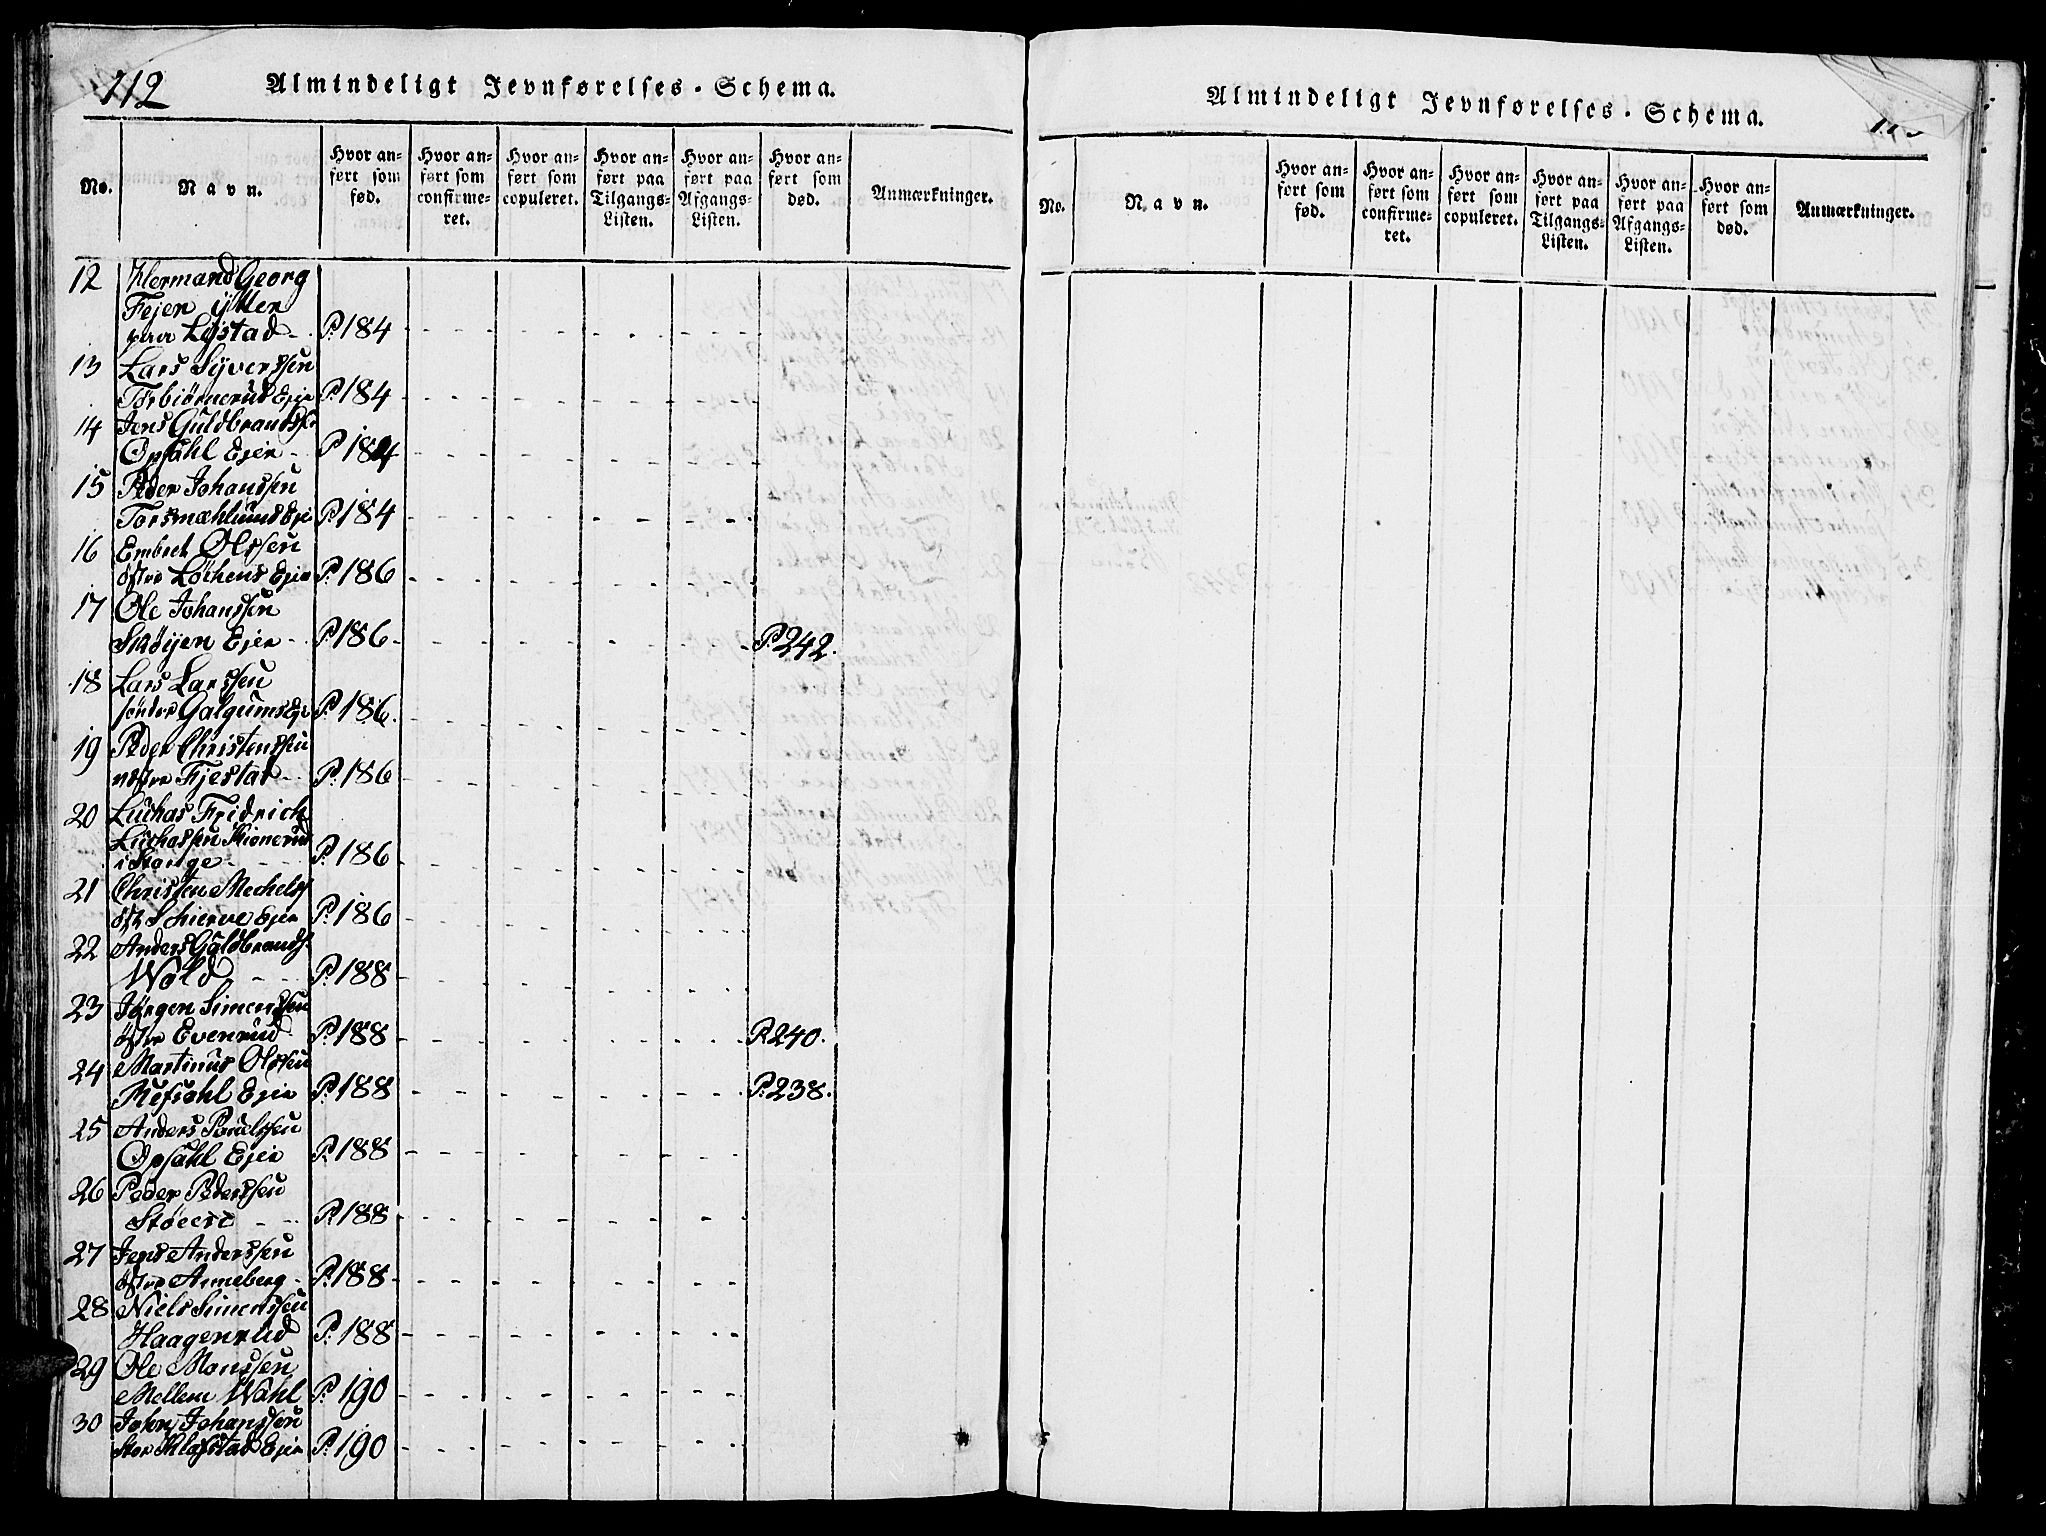 112
Almindeligt Jevnførelses-Schema.
No. Navn. Hvor anført som fød. Hvor anført som confirmeret. Hvor anført som copuleret. Hvor anført paa Tilgangs-Listen. Hvor anført paa Afgangs-Listen. Hvor anført som død. Anmærkninger.
12 Hermand Georg
Fejer
Lystad P. 184
13 Lars Syverssen
Torbiørnerud Ejer P. 184
14 Jens Guldbrands.
Opsahl Ejer P. 184
15 Peder Johanssen
Torsmæhlund Eje P. 184
16 Embret Olssen
østre Løchens Ejer P. 186
17 Ole Johanssen
Skøyen Ejer P. 186 P. 242.
18 Lars Larssen
søndre Galgum Eje P. 186.
19 Peder Christenssen
Fjestad P. 186
20 Luchas Fridrich
Luchassen Kionerud
i Stange P. 186
21 Christen Mechels
østr Schierve Ejer P. 186
22 Anders Guldbrands.
Wold P. 188
23 Jørgen Simenssen
østre Evenrud P. 188 P. 240.
24 Martinus Olssen
Refsahl Ejer P. 188 P. 238.
25 Anders Poulssen
Opsahl Ejer P. 188
26 Peder Pederssen
P. 188
27 Jens Anderssen
østre Anneberg P. 188
28 Niels Simenssen
Haagenrud P. 188
29 Ole Monssen
Mellem Wahl P. 190
30 John Johanssen
Stor Klafstad Ejer P. 190
Almindeligt Jevnførelses-Schema.
No. Navn. Hvor anført som fød. Hvor anført som confirmeret. Hvor anført som copuleret. Hvor anført paa Tilgangs-Listen. Hvor anført paa Afgangs-Listen. Hvor anført som død. Anmærkninger.